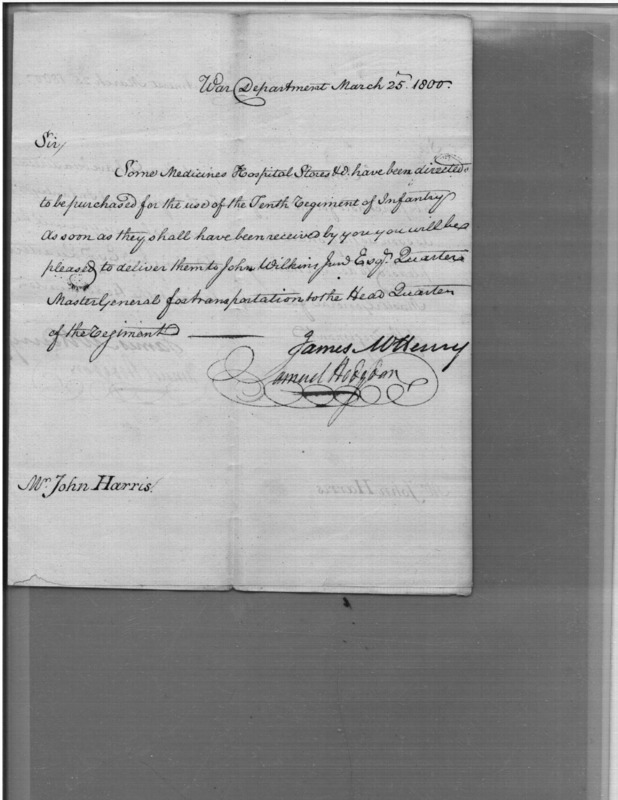 War Department March 25th 1800.
Sir,
Some Medicines Hospital Stores &c. have been directed
to be purchased for the use of the Tenth Regiment of Infantry
As soon as they shall have been received by you you will be
pleased to deliver them to John Wilkins Junr Esqr. Quarter
Master General for transportation to the Head Quarters
of the Regiment
James McHenry
Samuel Hodgdon
Mr. John Harris.